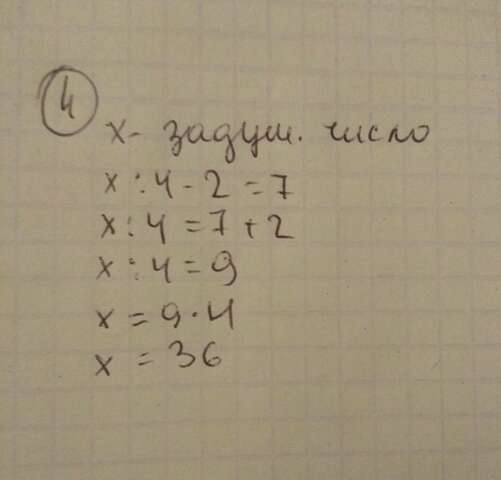 4
x- задум. число
x:4-2=7
x:4=7+2
x:4=9
x=9·4
x=36